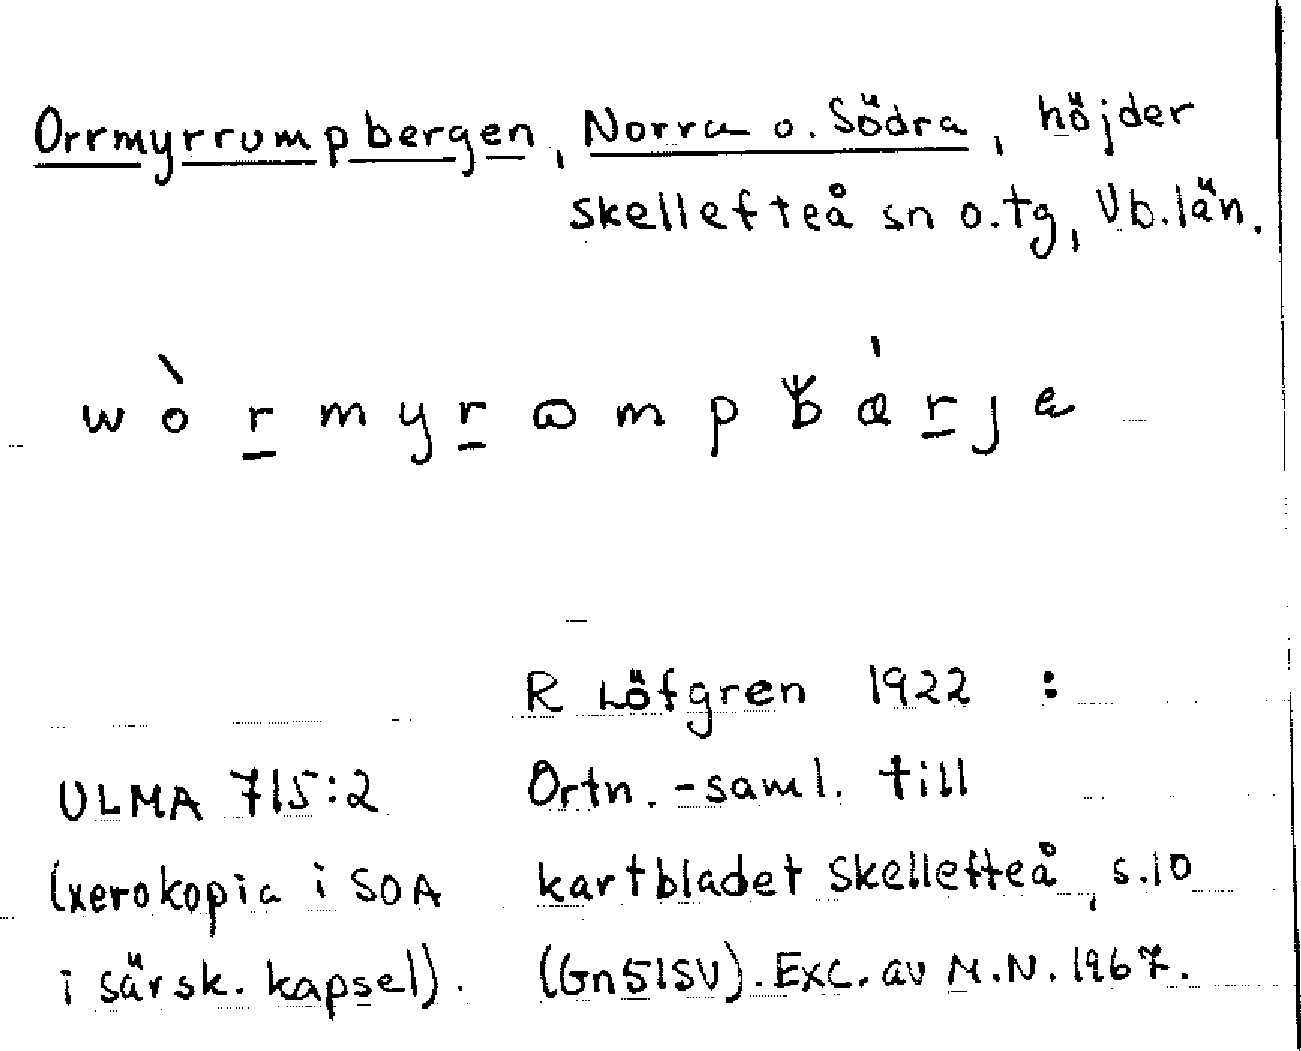 Orrmyrrumpbergen, Norra o. Södra, höjder
Skellefteå sn o.tg, Vb.län.
R Löfgren 1922 :
ULMA 715:2 Ortn.-saml. till
(xerokopia i SOA kartbladet Skellefteå, s.10
i särsk. kapsel). (Gn51SV). Exc. av M.N. 1967.